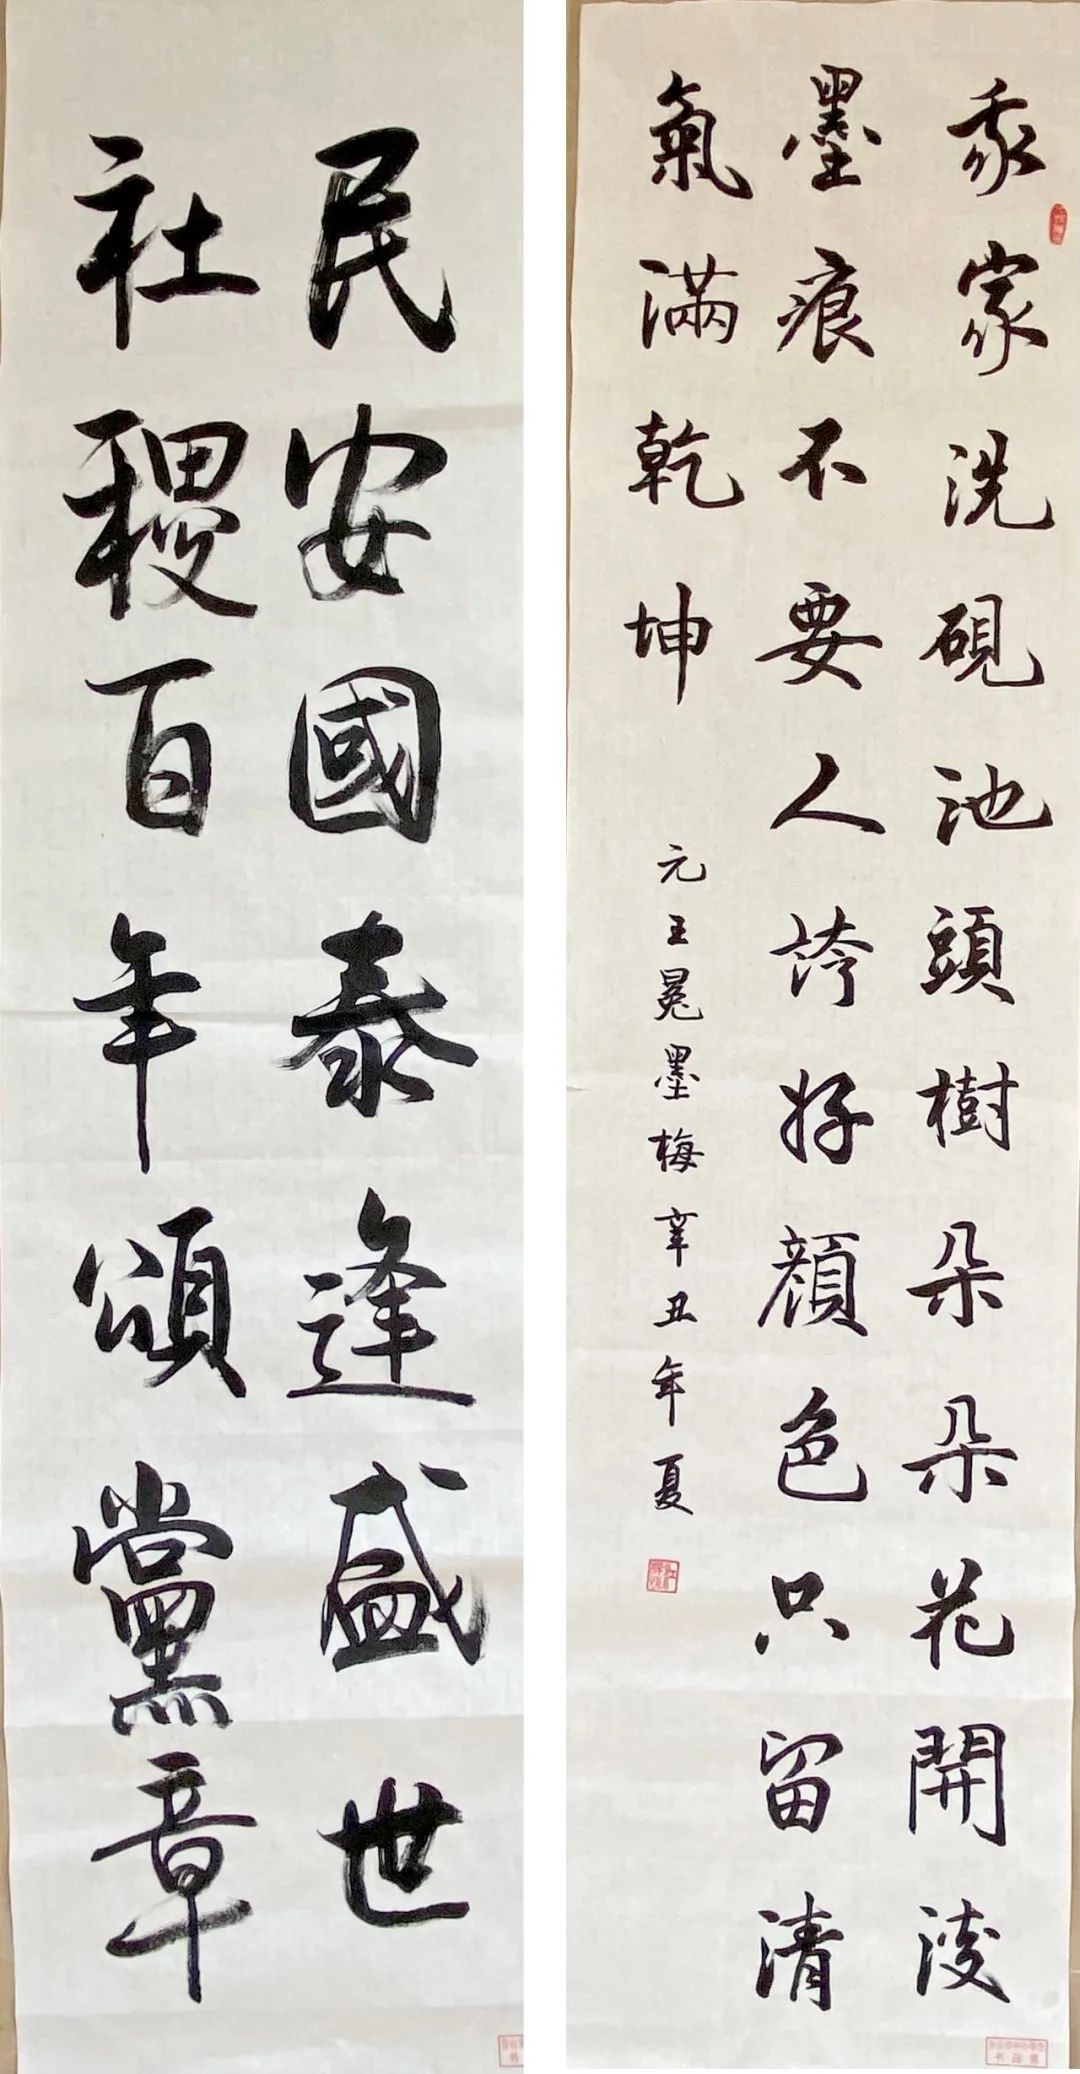 民安國泰逢盛世
社稷百年頌黨章
我家洗硯池頭樹朵朵花開淡
墨痕不要人誇好顔色只留清
氣滿乾坤
元王冕墨梅辛丑年夏